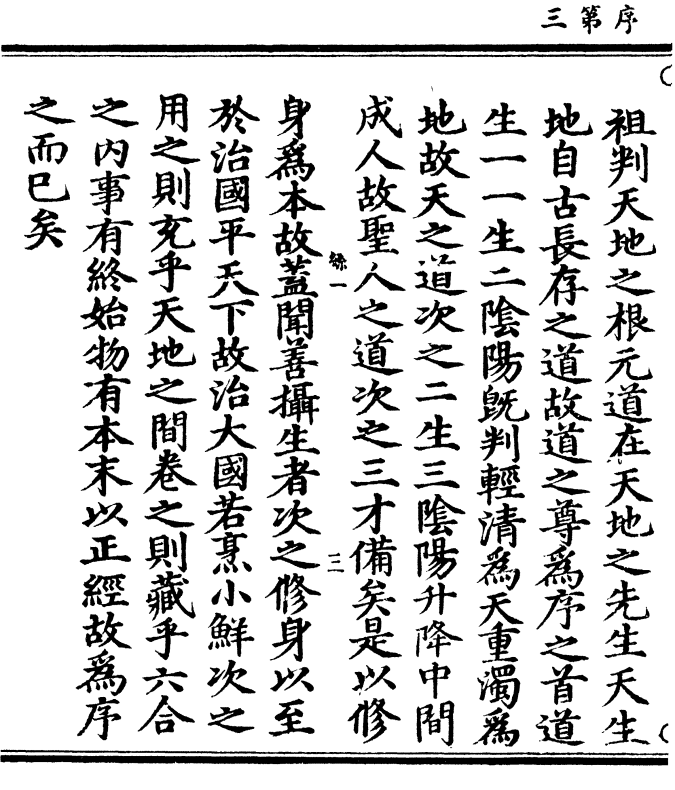 序第三
祖判天地之根元道在天地之先生天生
地自古長存之道故道之尊爲序之首道
生一一生二陰陽旣判輕清爲天重濁爲
地故天之道次之二生三陰陽升降中間
成人故聖人之道次之三才備矣是以修
三
身爲本故蓋聞善攝生者次之修身以至
於治國平天下故治大國若烹小鮮次之
用之則充乎天地之間卷之則藏乎六合
之內事有終始物有本末以正經故爲序
之而已矣